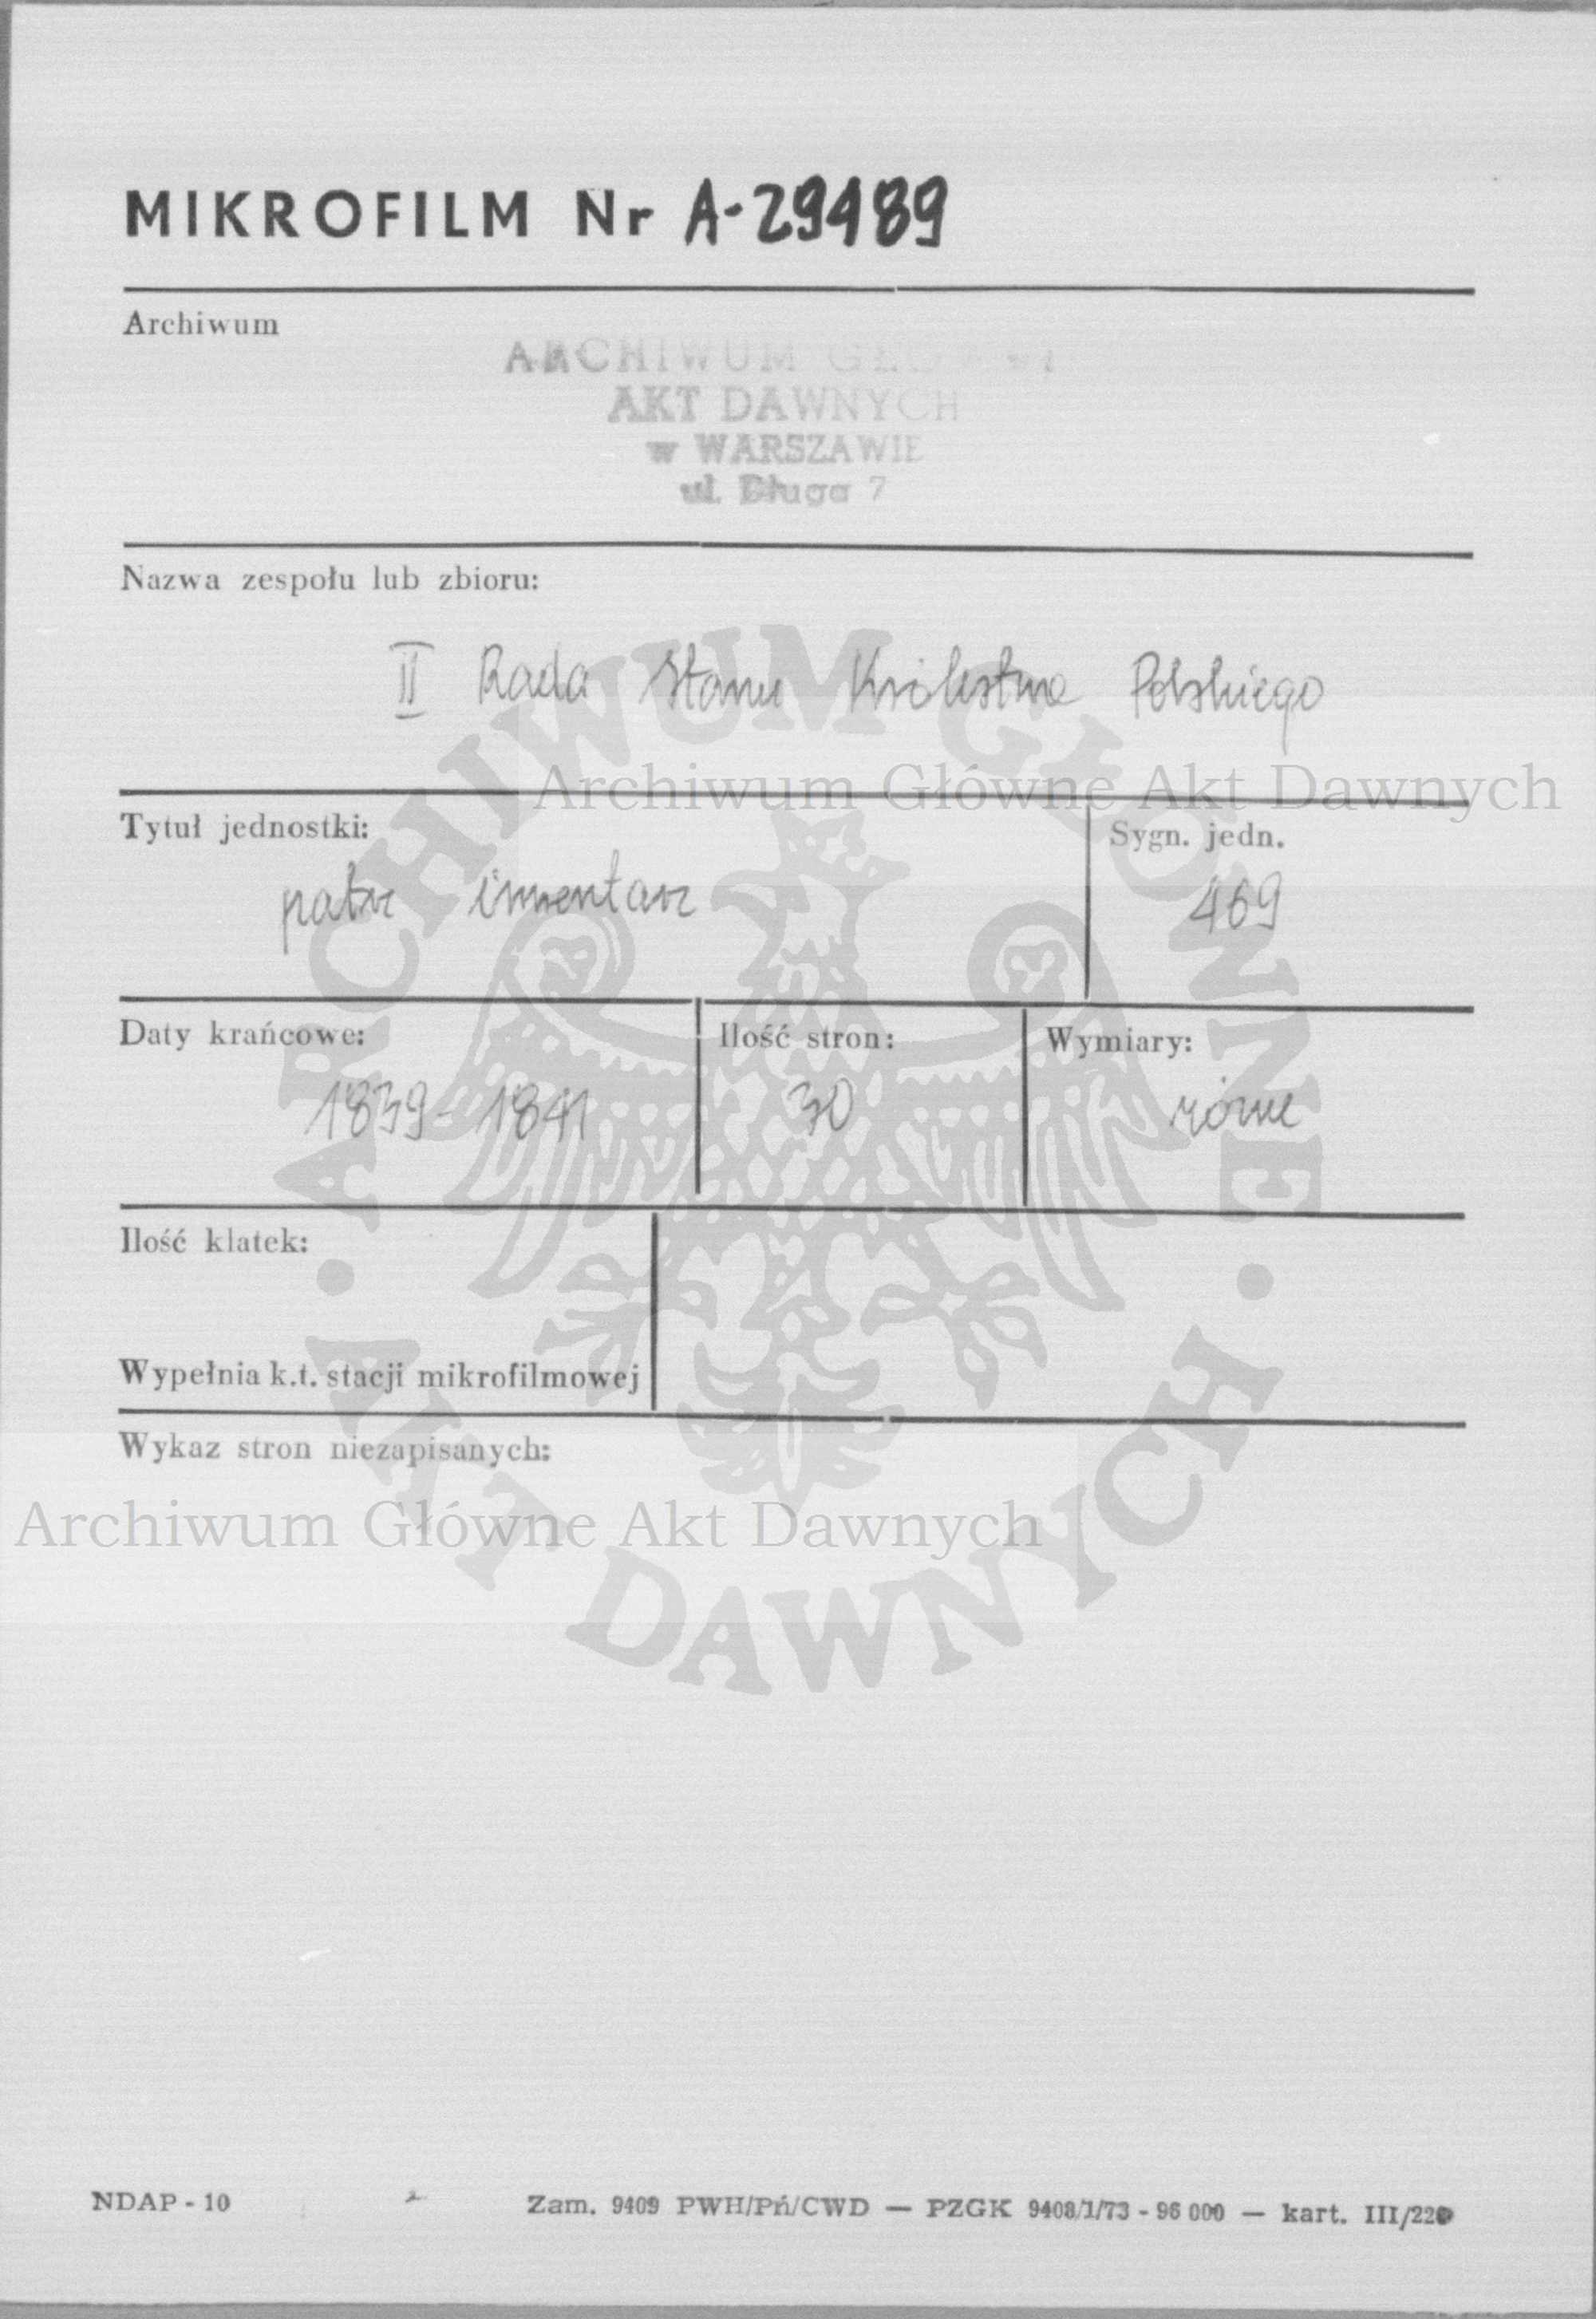 MIKROFILM Nr A-29489
Archiwum
ARCHIWUM GŁÓWNE
AKT DAWNYCH
w WARSZAWIE
ul. Długa 7
Nazwa zespołu lub zbioru:
II Rada Stanu Królestwa Polskiego
Archiwum Główne Akt Dawnych
Tytuł jednostki:
Sygn. jedn.
patrz inwentarz
469
Daty krańcowe:
Ilość stron:
Wymiary:
1839-1841
30
różne
Ilość klatek:
Wypełnia k.t. stacji mikrofilmowej
Wykaz stron niezapisanych:
Archiwum Główne Akt Dawnych
ARCHIWUM GŁÓWNE · AKT DAWNYCH ·
NDAP - 10
Zam. 9409 PWH/Pń/CWD — PZGK 9408/1/73 - 96 000 — kart. III/220